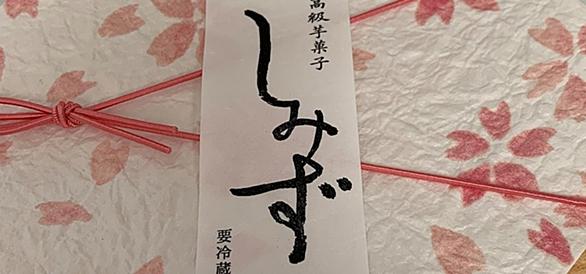 高級芋菓子
しみず
要冷蔵